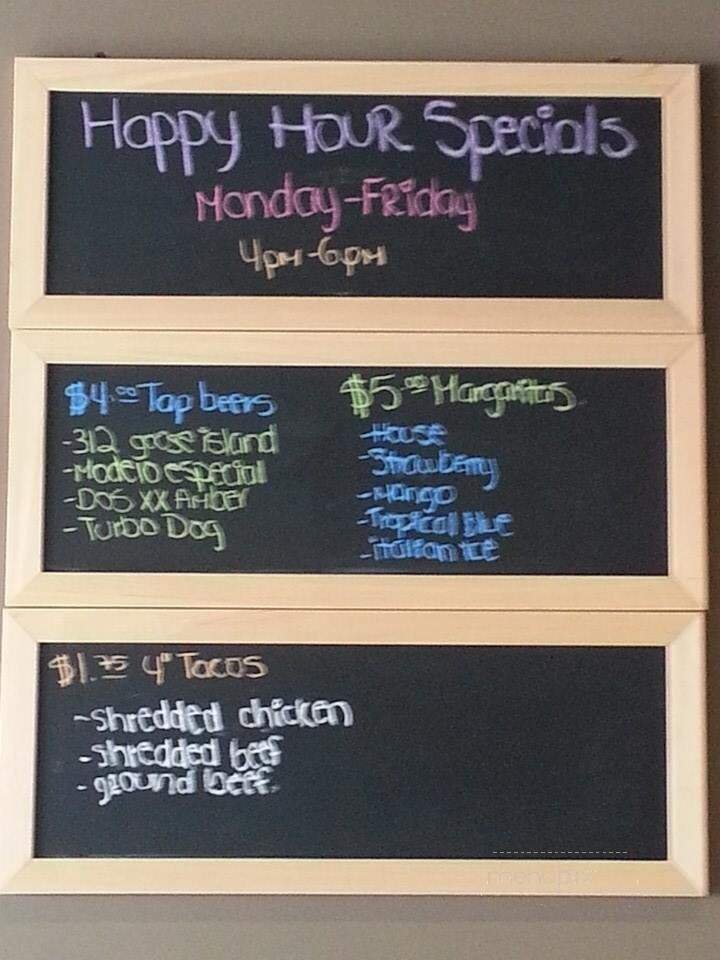 Happy Hour Specials
Monday-Friday
4pm-6pm
$4.00 Tap beers
-312 goose island
-Modelo especial
-Dos XX Amber
-Turbo Dog
$5.00 Margaritas
-House
-Strawberry
-Mango
-Tropical Blue
-italian ice
$1.75 4" Tacos
-shredded chicken
-shredded beef
-ground beef